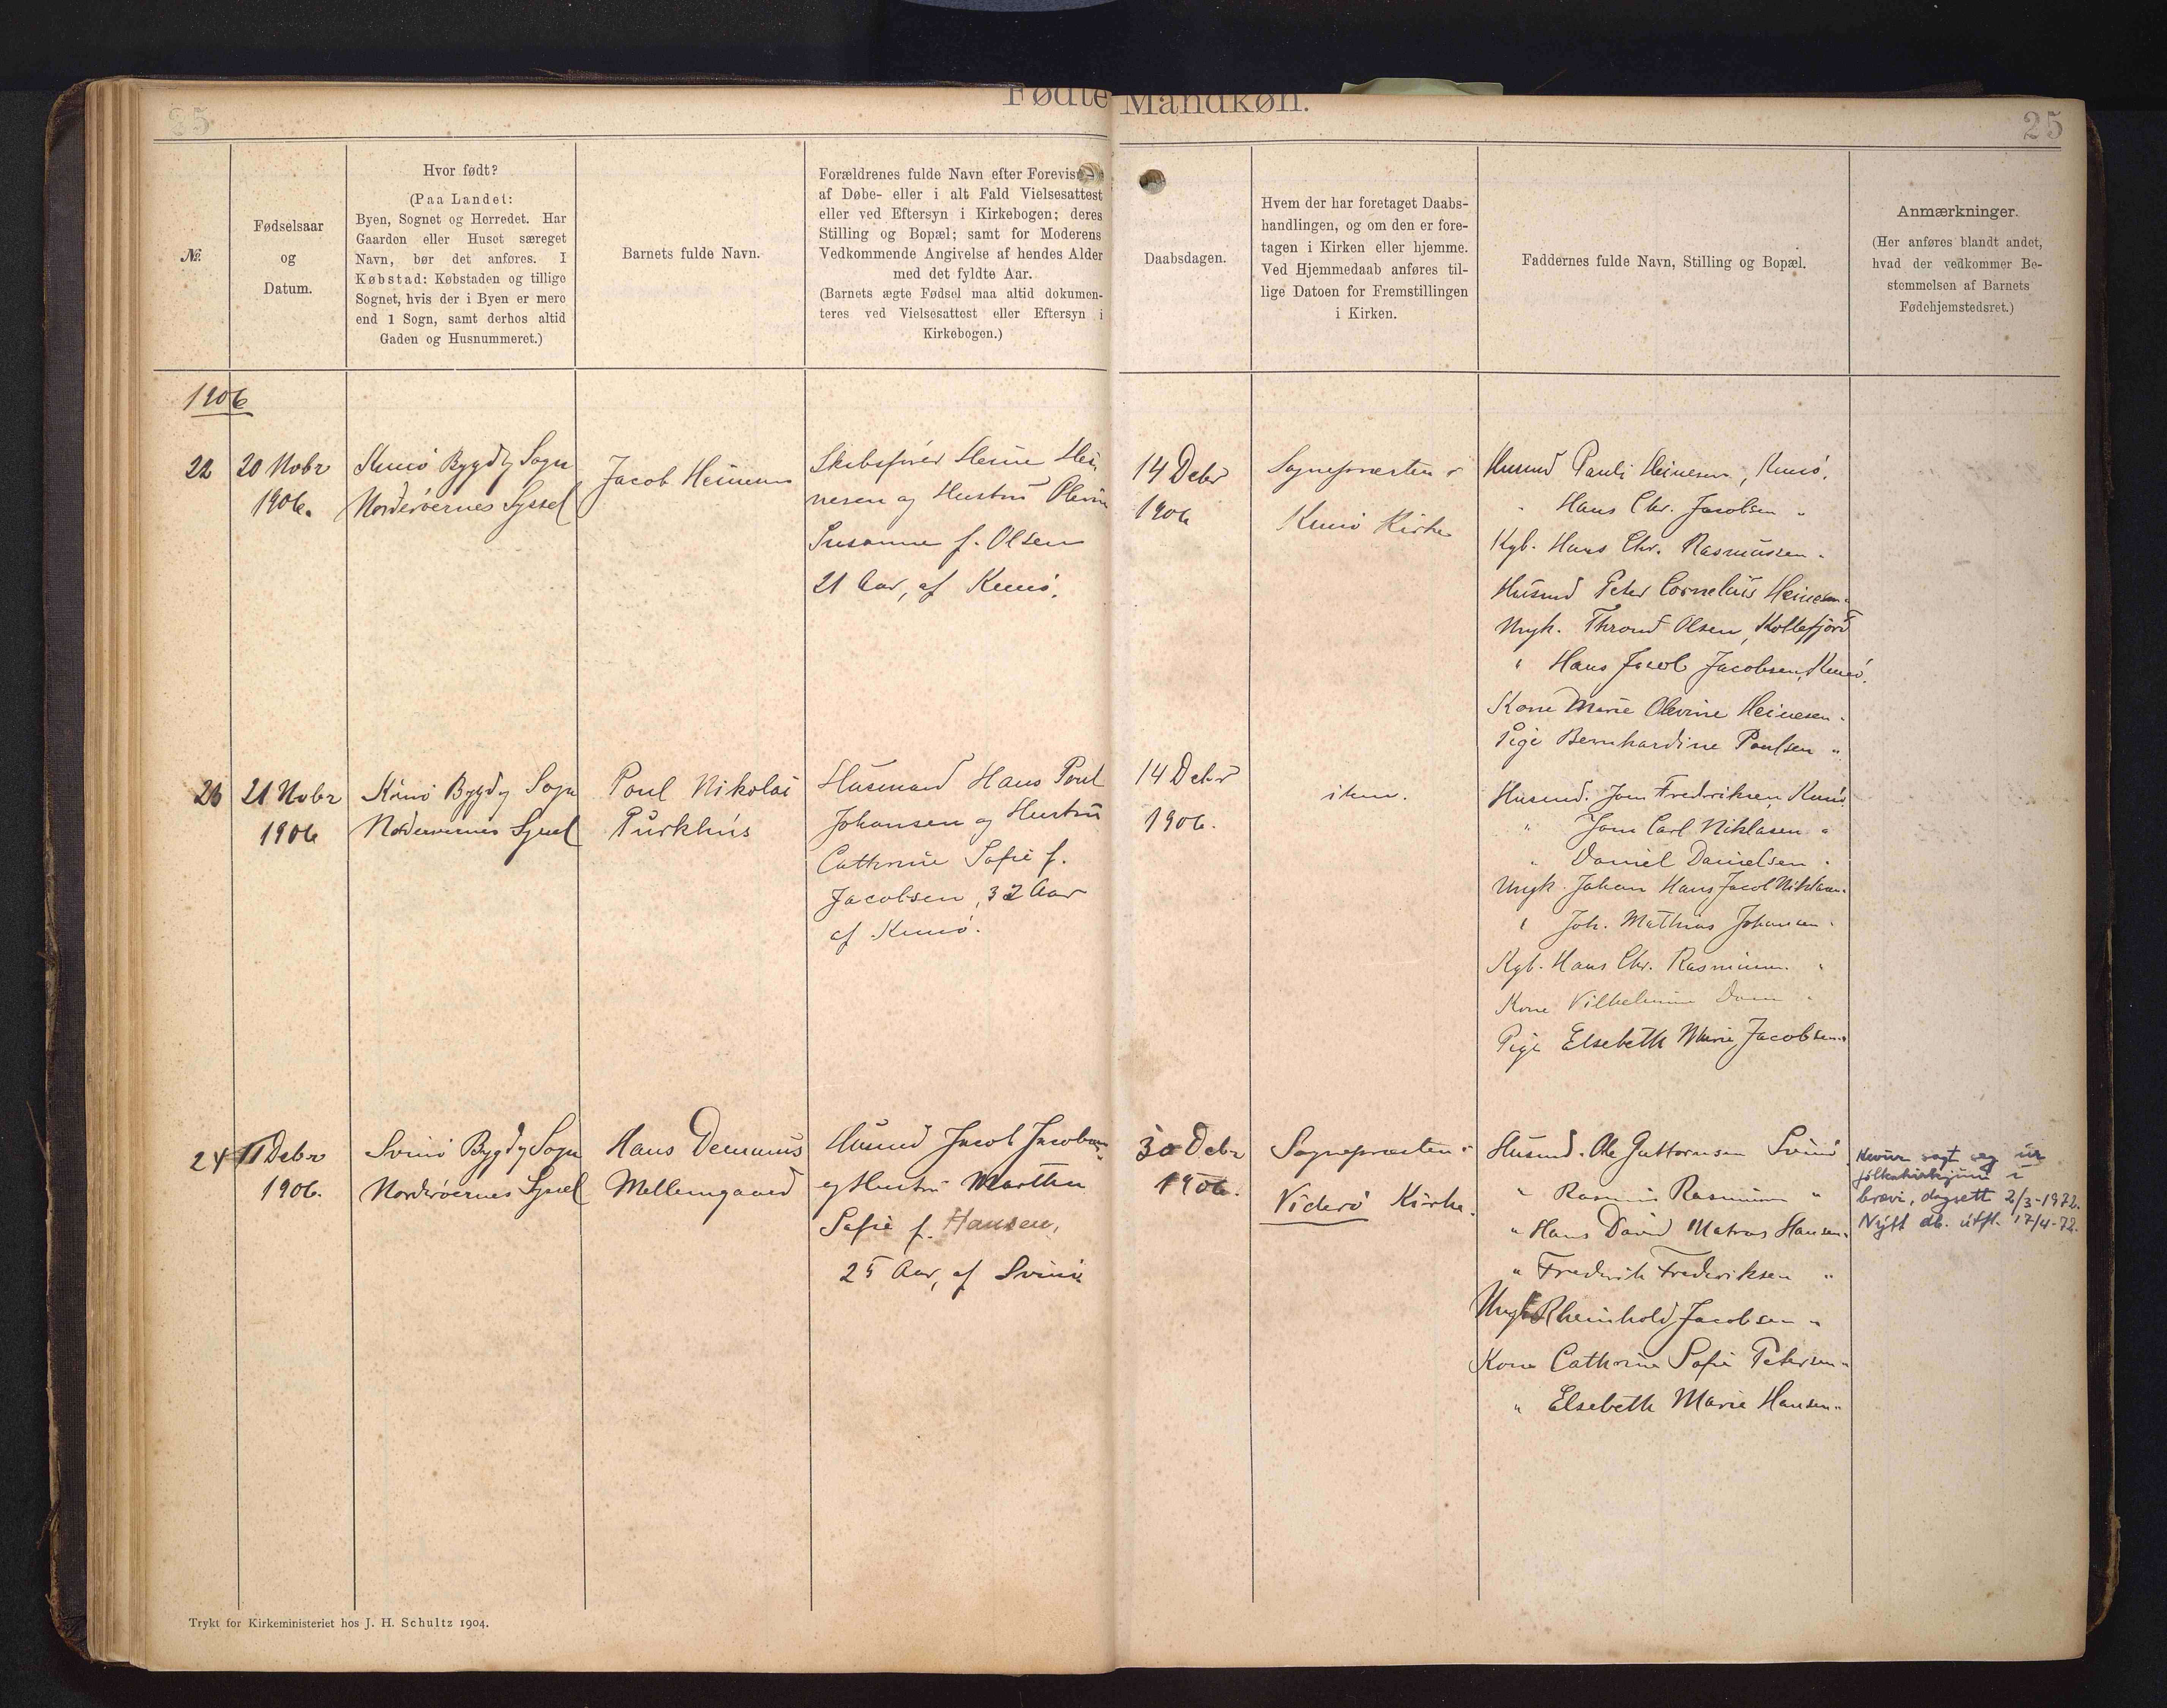 Fødte Mandkøn.
25
25
No.
Fødselsaar
og
Datum.
Hvor født?
(Paa Landet:
Byen, Sognet og Herredet. Har
Gaarden eller Huset særeget
Navn, bør det anføres. I
Købstad: Købstaden og tillige
Sognet, hvis der i Byen er mere
end 1 Sogn, samt derhos altid
Gaden og Husnummeret.)
Barnets fulde Navn.
Forældrenes fulde Navn efter Forevisning
af Døbe- eller i alt Fald Vielsesattest
eller ved Eftersyn i Kirkebogen; deres
Stilling og Bopæl; samt for Moderens
Vedkommende Angivelse af hendes Alder
med det fyldte Aar.
(Barnets ægte Fødsel maa altid dokumen-
teres ved Vielsesattest eller Eftersyn i
Kirkebogen.)
Daabsdagen.
Hvem der har foretaget Daabs-
handlingen, og om den er fore-
tagen i Kirken eller hjemme.
Ved Hjemmedaab anføres til-
lige Datoen for Fremstillingen
i Kirken.
Faddernes fulde Navn, Stilling og Bopæl.
Anmærkninger.
(Her anføres blandt andet,
hvad der vedkommer Be-
stemmelsen af Barnets
Fødehjemstedsret.)
1906
22
20 Nobr
1906.
Kunø Bygd og Sogn
Norderøernes Syssel
Jacob Heinesen
Skibsfører Heine Hei-
nesen og Hustru Olevine
Susanne f. Olsen
21 Aar, af Kunø.
14 Debr
1906
Sognepræsten i
Kunø Kirke
Husmd Pauli Heinesen, Kunø.
" Hans Chr. Jacobsen "
Kgb. Hans Chr. Rasmussen "
Husmd Peter Cornelius Heinesen "
Ungk. Thrond Olsen, Kollefjord
" Hans Jacob Jacobsen, Kunø.
Kone Marie Olevine Heinesen "
Pige Bernhardine Poulsen "
23
21 Nobr
1906
Kunø Bygd og Sogn
Norderøernes Syssel
Poul Nikolai
Purkhús
Husmand Hans Poul
Johansen og Hustru
Cathrine Sofie f.
Jacobsen, 32 Aar
af Kunø.
14 Debr
1906.
item.
Husmd. Joen Frederiksen, Kunø
" Joen Carl Niklasen "
" Daniel Danielsen "
Ungk. Johan Hans Jacob Niklasen "
" Joh. Mathias Johansen "
Kgb. Hans Chr. Rasmussen "
Kone Vilhelmine "
Pige Elsebeth Marie Jacobsen "
24
11 Debr
1906.
Svinø Bygd og Sogn
Norderøernes Syssel
Hans Demmus
Mellemgaard
Husmd Jacob Jacobsen
og Hustru Marthe
Sofie f. Hansen,
25 Aar, af Svinø
30 Debr
1906.
Sognepræsten i
Viderø Kirke.
Husmd. Ole Guttormsen Svinø
" Rasmus Rasmussen "
" Hans David Matras Hansen "
" Frederik Frederiksen "
Ungk. Rheinhold Jacobsen "
Kone Cathrine Sofie Petersen "
" Elsebeth Marie Hansen "
Hevur sagt seg úr
fólkakirkjuni í
brævi, dagsett 2/3-1972.
Nýtt db. útfl. 17/4-72.
Trykt for Kirkeministeriet hos J. H. Schultz 1904.